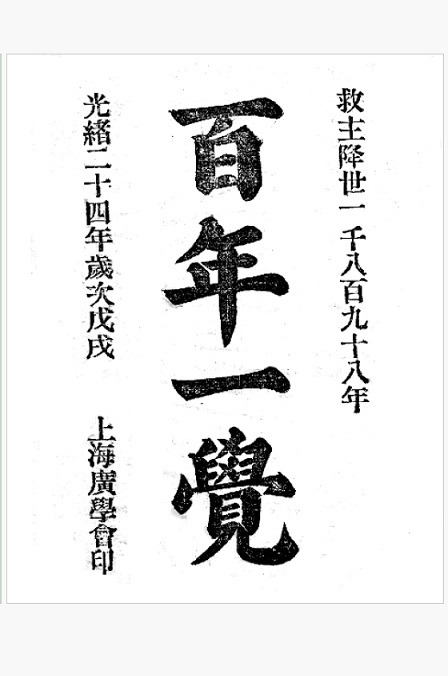 救主降世一千八百九十八年
百年一覺
光緒二十四年歲次戊戌
上海廣學會印